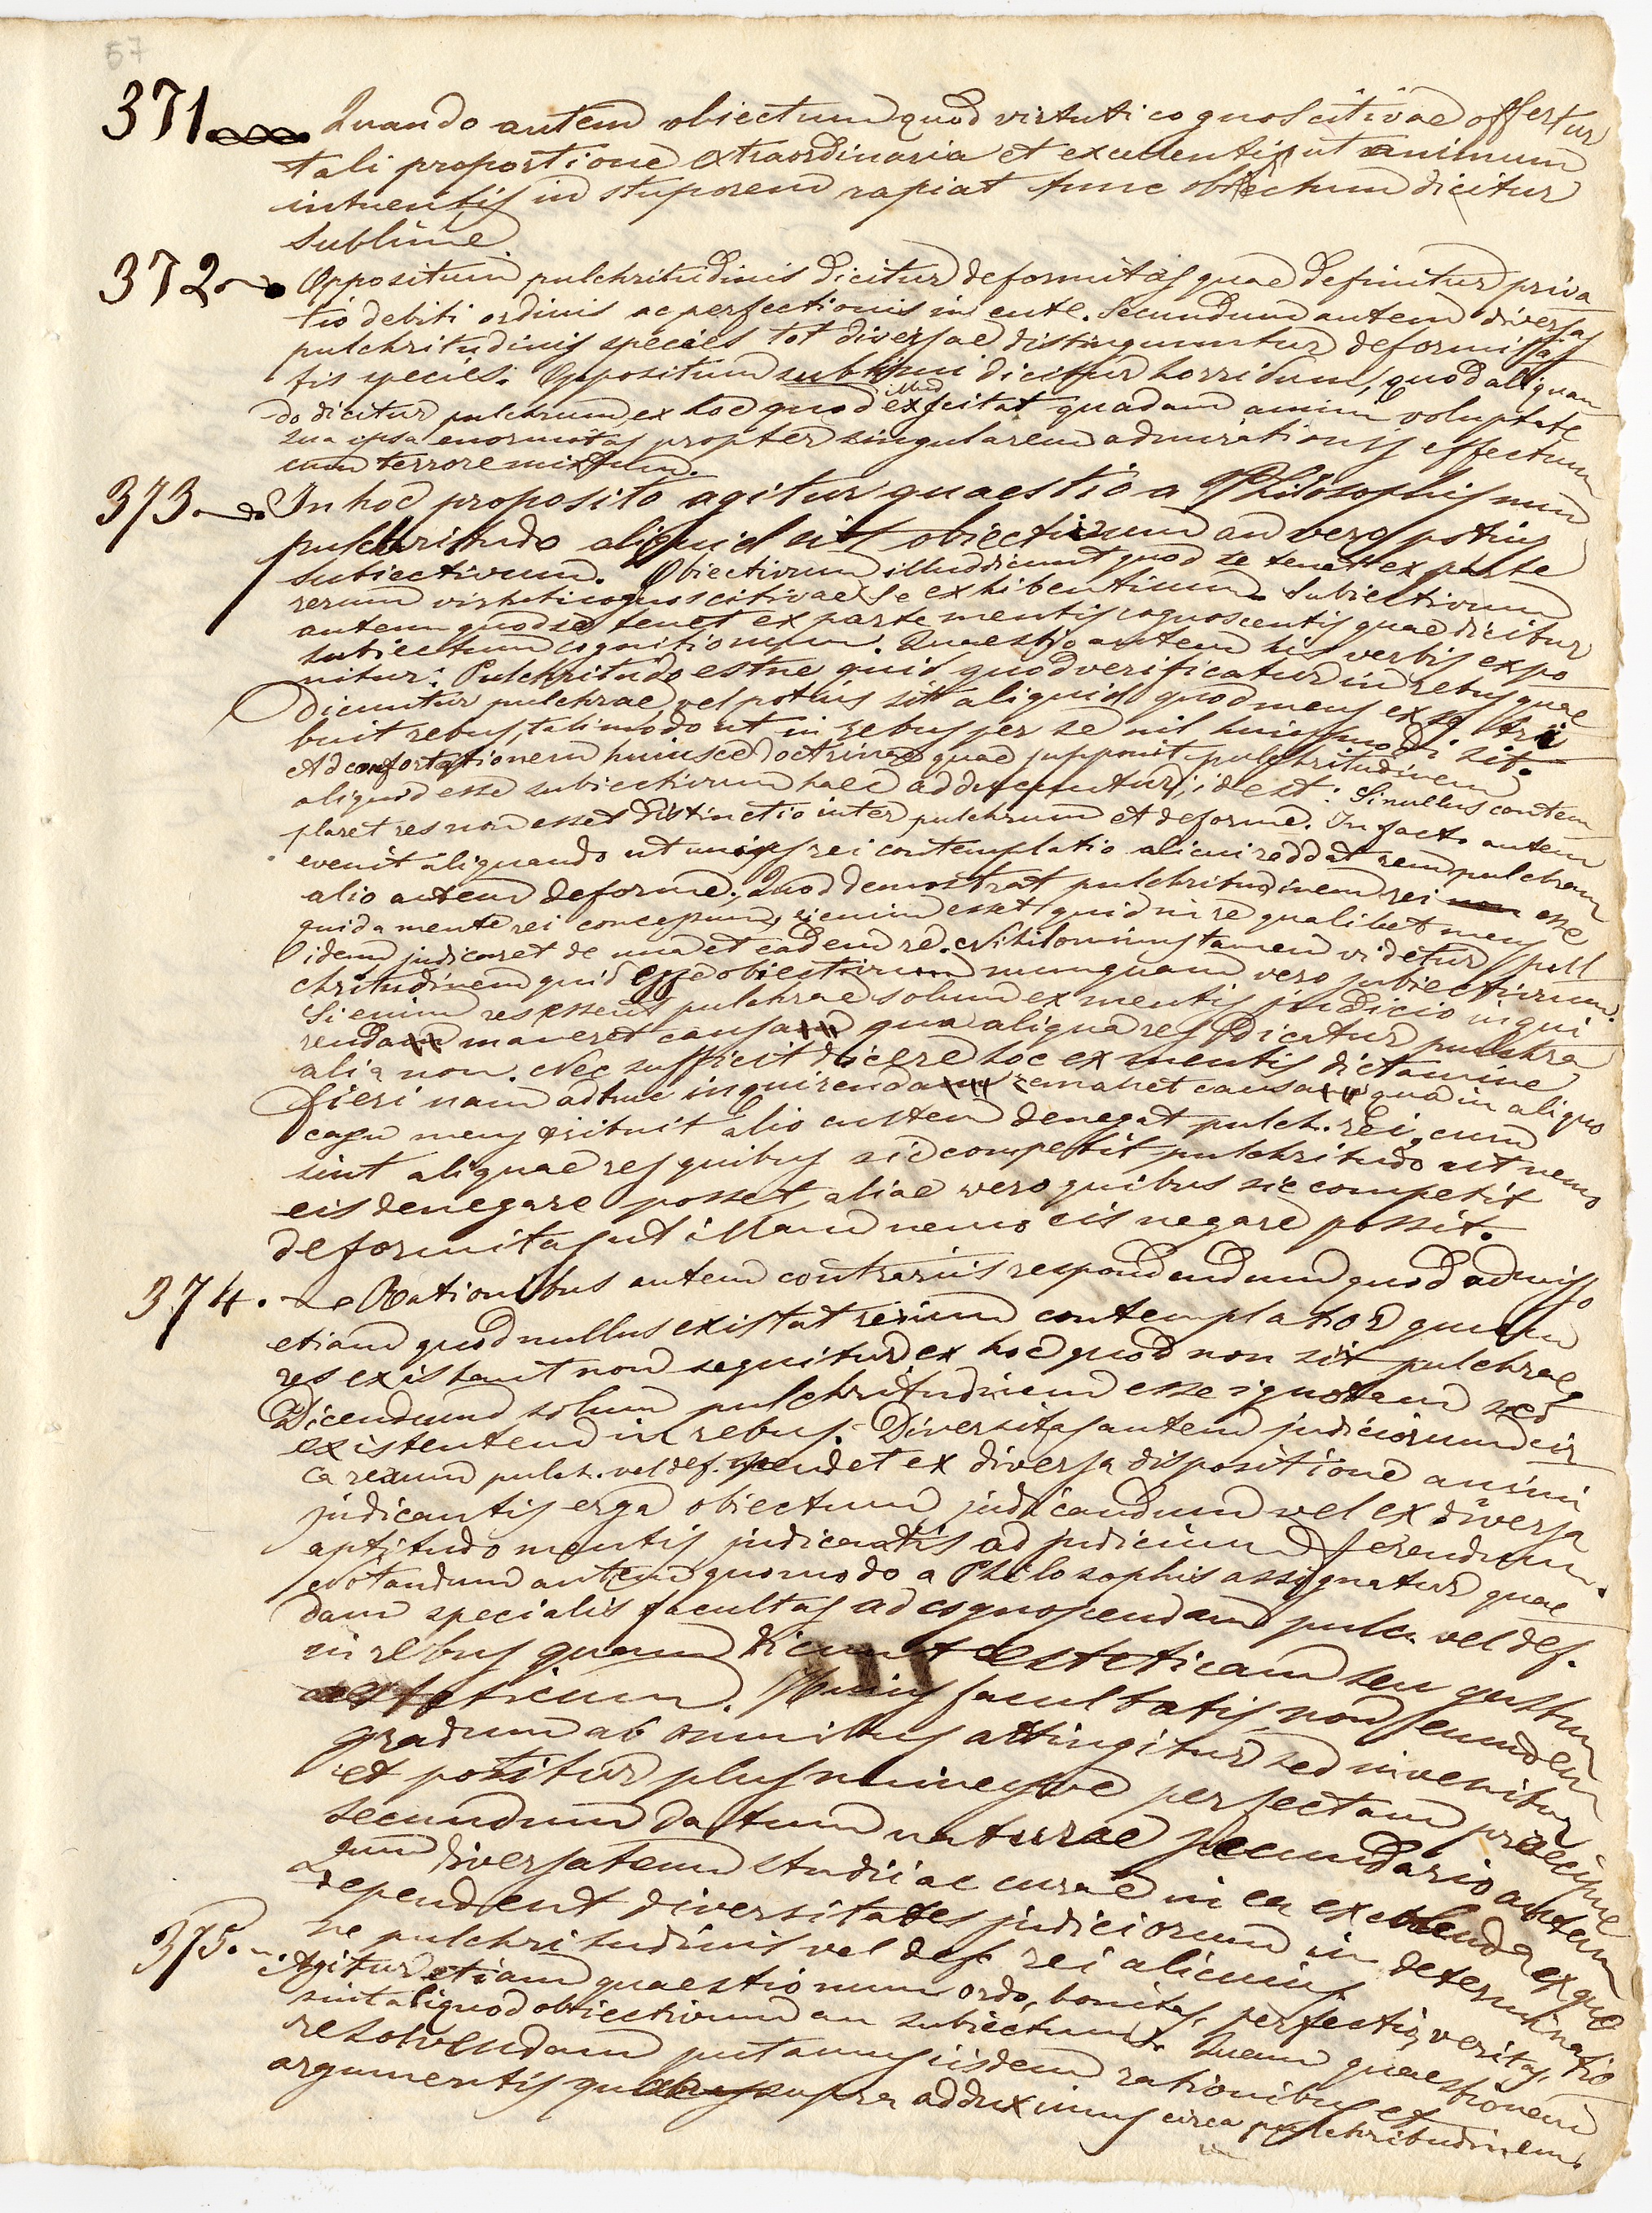 57
371. Quando autem obiectum quod virtuti cognoscitivae offertur
tali proportione extraordinaria et excedentis ut animum
intuentis in stuporem rapiat tunc obiectum dicitur
sublime.
372. Oppositum pulchritudinis dicitur deformitas quae definitur priva
tio debiti ordinis ac perfectionis in ente. Secundum autem diversas
pulchritudinis species tot diversae distinguuntur deformita
tis species. Oppositum sublimi dicitur horridum, quod aliquan
do dicitur pulchrum ex hoc quod illud excitat quadam animi voluptate
sua ipsa enormitas propter singularem admirationis effectum
cum terrore mixtum.
373. In hoc proposito agitur quaestio a Philosophis num
pulchritudo aliquid sit obiectivum an vero potius
subiectivum. Obiectivum illud dicunt quod se tenet ex parte
rerum virtuti cognoscitivae se exhibentium. Subiectivum
autem quod se tenet ex parte mentis cognoscentis quae dicitur
subiectum cognitionum. Quaestio autem his verbis expo
nitur: Pulchritudo estne quid quod verificatur in rebus quae
dicuntur pulchrae, vel potius sit aliquid quod mens ex se tri
buit rebus, tali modo ut in rebus per se nil huiusmodi sit.
Ad confortationem huiusce doctrinae quae supponit pulchritudinem
aliquid esse subiectivum haec adducuntur, id est: Si nullus contem
plaret res non esset distinctio inter pulchrum et deforme. In facto autem
evenit aliquando ut unius rei contemplatio alicui reddat rem pulchram
alio autem deforme. Quod demostrat pulchritudinem rei esse
quid a mente rei concepum, si enim esset quid in re qualibet mens
idem judicaret de una et eadem re. Nihilominus tamen videtur pul
chritudinem quid esse obiectivum numquam vero subiectivum.
Si enim res essent pulchrae solum ex mentis judicio inqui
renda maneret causa qua aliqua res dicatur pulchra
alia non. Nec sufficit dicere hoc ex mentis dictamine
fieri nam adhuc inquirenda remanet causa qua in aliquo
casu mens tribuit alio autem denegat pulch. rei, cum
sint aliquae res quibus sic competit pulchritudo ut nemo
eis denegare posset, aliae vero quibus sic competit
deformitas ut illam nemo eis negare possit.
374. Rationibus autem contrariis respondendum quod admisso
etiam quod nullus existat rerum contemplator quum
res existant non sequitur ex hoc quod non sit pulchrae
Dicendum solum pulchritudinem esse ignotam sed
existentem in rebus. Diversitas autem judiciorum cir
ca rerum pulch. vel def. pendet ex diversa dispositione animi
judicantis erga obiectum judicandum vel ex diversa
aptitudo mentis judicantis ad judicium ferendum.
Notandum autem quomodo a Philosophis assignatur quae
dam specialis facultas ad cognoscendam pulch. vel def.
in rebus quam dicunt esteticam seu gustum
aesteticum. Huius facultatis non eumdem
gradum ab omnibus attingitur sed invenitur
et positur plus minusve perfectam praecipue
secundum datum naturae secundario autem
diversatem studii ac curae in ea excolenda ex quo
dependent diversitates judiciorum in determinatio
ne pulchritudinis vel def. rei alicuius.
375. Agitur etiam quaestio num ordo, bonitas, perfectio, veritas,
sint aliquod obiectivum an subiectivum. Quam quaestionem
resolvendam putamus iisdem rationibus et
argumentis quibus supra adduximus circa pulchritudinem.